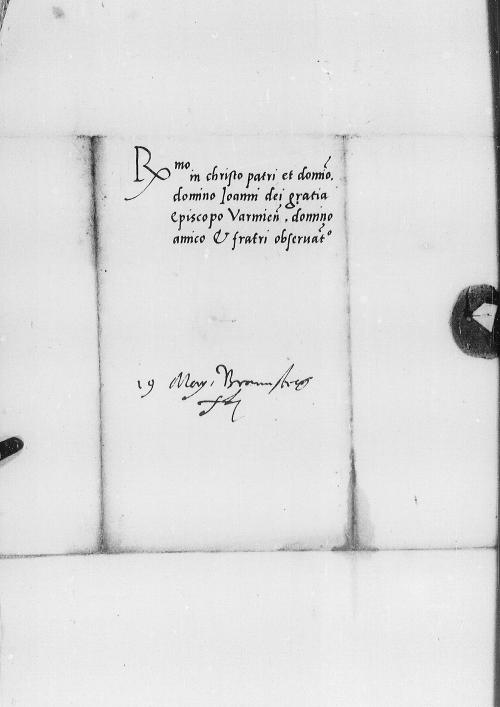 Rmo in christo patri et domino.
domino Ioanni dei gratia
Episcopo Varmieñ. domino
amico & fratri obseruato
19 May. Braunsberg